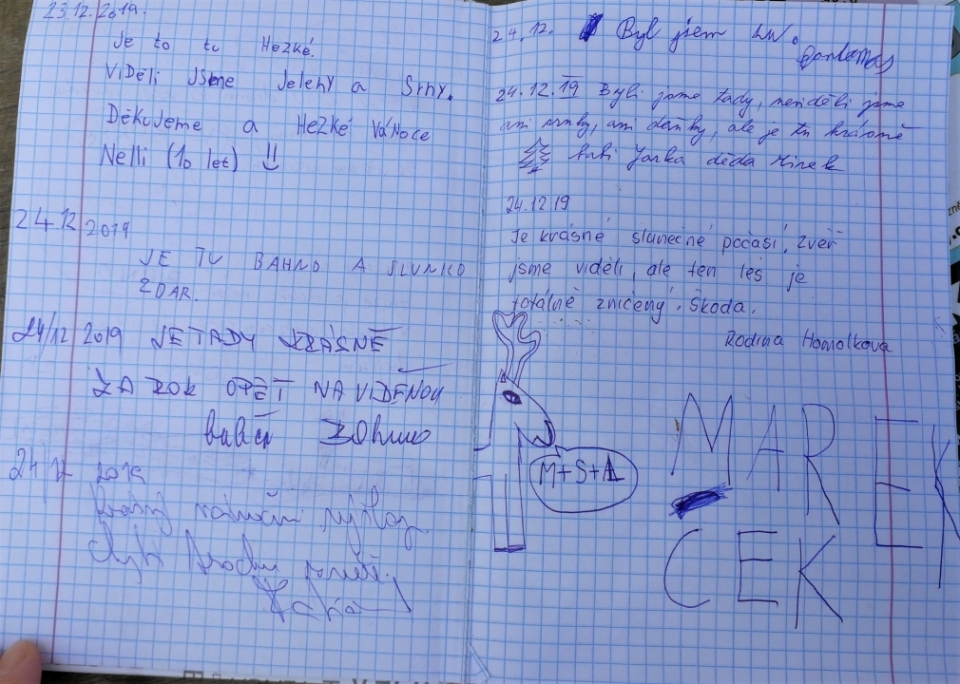 23.12.2019.
Je to tu Hezké.
ViDěli jsme Jeleny a Srny.
Děkujeme a HeZKé VáNoce
Nelli (10 let)
24.12 2019
JE TU BAHNO A SLUNKO
ZDAR.
24/12 2019 JE TADY KRÁSNĚ
ZA ROK OPĚT NA VIDĚNOU
24 12
krásný vánoční výhled
chybí trochu
24.12. Byl jsem
24.12.19 Byli jsme tady, neviděli jsme
ani srnky, ani daňky, ale je tu krásně
babi Jarka děda Mirek
24.12.19
Je krásné slunečné počasí. Zvěř
jsme viděli, ale ten les je
totálně zničený. Škoda.
Rodina Homolkova
M+S+A
MAREK
CEK